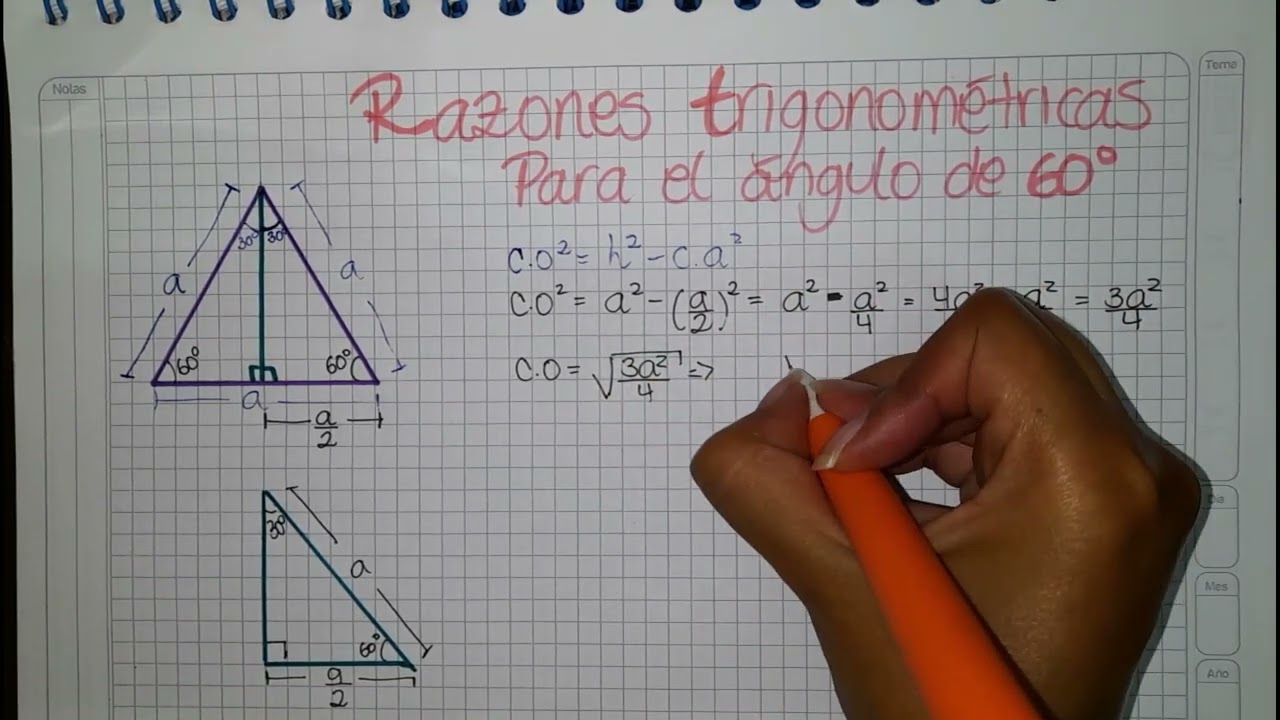 Notas
Tema
Razones trigonométricas
Para el ángulo de 60°
30° 30°
a
a
60°
60°
a
a/2
C.O² = h² - c.a²
C.O² = a² - (a/2)² = a² - a²/4 = a² = 3a²/4
C.O = √(3a²/4) =>
30°
a
60°
a/2
Mes
Año